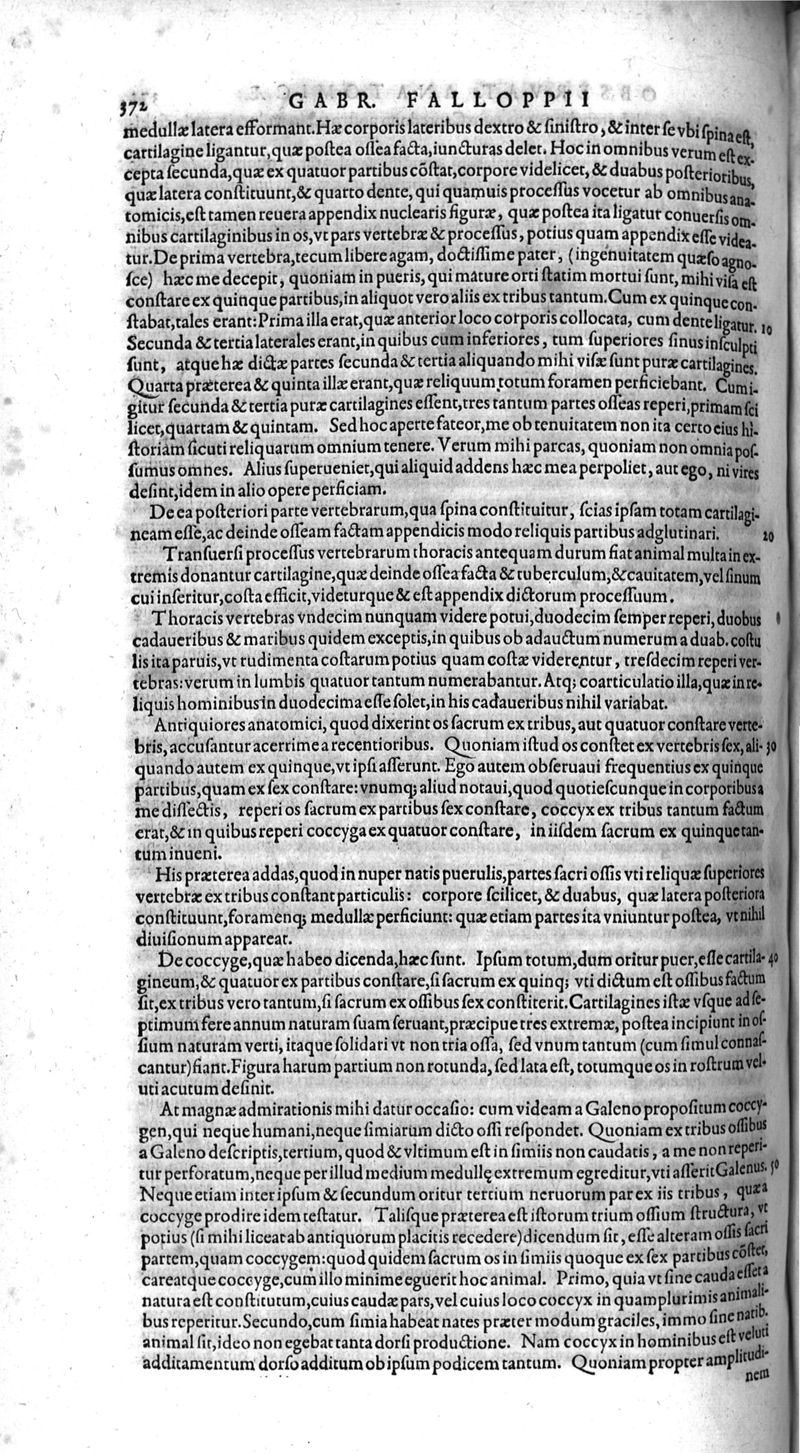 372 GABR. FALLOPPII
medullæ latera efformant. Hæ corporis lateribus dextro & ſiniſtro, & inter ſe vbi ſpina eſt
cartilagine ligantur, quæ poſtea oſſea facta, iuncturas delet. Hoc in omnibus verum eſt ex-
cepta ſecunda, quæ ex quatuor partibus cōſtat, corpore videlicet, & duabus poſterioribus,
quæ latera conſtituunt, & quarto dente, qui quamuis proceſſus vocetur ab omnibus ana-
tomicis, eſt tamen reuera appendix nuclearis figuræ, quæ poſtea ita ligatur conuerſis om-
nibus cartilaginibus in os, vt pars vertebræ & proceſſus, potius quam appendix eſſe videa-
tur. De prima vertebra, tecum libere agam, doctiſſime pater, (ingenuitatem quæſo agno-
ſce) hæc me decepit, quoniam in pueris, qui mature orti ſtatim mortui ſunt, mihi viſa eſt
conſtare ex quinque partibus, in aliquot vero aliis ex tribus tantum. Cum ex quinque con-
ſtabat, tales erant: Prima illa erat, quæ anterior loco corporis collocata, cum dente ligatur. 10
Secunda & tertia laterales erant, in quibus cum inferiores, tum ſuperiores ſinus inſculpti
ſunt, atque hæ dictæ partes ſecunda & tertia aliquando mihi viſæ ſunt puræ cartilagines.
Quarta præterea & quinta illæ erant, quæ reliquum totum foramen perficiebant. Cum i-
gitur ſecunda & tertia puræ cartilagines eſſent, tres tantum partes oſſeas reperi, primam ſci
licet, quartam & quintam. Sed hoc aperte fateor, me ob tenuitatem non ita certo eius hi-
ſtoriam ſicuti reliquarum omnium tenere. Verum mihi parcas, quoniam non omnia poſ-
ſumus omnes. Alius ſuperueniet, qui aliquid addens hæc mea perpoliet, aut ego, ni vires
deſint, idem in alio opere perficiam.
De ea poſteriori parte vertebrarum, qua ſpina conſtituitur, ſcias ipſam totam cartilagi-
neam eſſe, ac deinde oſſeam factam appendicis modo reliquis partibus adglutinari. 20
Tranſuerſi proceſſus vertebrarum thoracis antequam durum fiat animal multa in ex-
tremis donantur cartilagine, quæ deinde oſſea facta & tuberculum, & cauitatem, vel ſinum
cui inſeritur, coſta efficit, videturque & eſt appendix dictorum proceſſuum.
Thoracis vertebras vndecim nunquam videre potui, duodecim ſemper reperi, duobus
cadaueribus & maribus quidem exceptis, in quibus ob adauctum numerum a duab. coſtu
lis ita paruis, vt rudimenta coſtarum potius quam coſtæ viderentur, treſdecim reperi ver-
tebras: verum in lumbis quatuor tantum numerabantur. Atq; coarticulatio illa, quæ in re-
liquis hominibus in duodecima eſſe ſolet, in his cadaueribus nihil variabat.
Antiquiores anatomici, quod dixerint os ſacrum ex tribus, aut quatuor conſtare verte-
bris, accuſantur acerrime a recentioribus. Quoniam iſtud os conſtet ex vertebris ſex, ali- 30
quando autem ex quinque, vt ipſi aſſerunt. Ego autem obſeruaui frequentius ex quinque
partibus, quam ex ſex conſtare: vnumq; aliud notaui, quod quotieſcunque in corporibus a
me diſſectis, reperi os ſacrum ex partibus ſex conſtare, coccyx ex tribus tantum factum
erat, & in quibus reperi coccyga ex quatuor conſtare, in iiſdem ſacrum ex quinque tan-
tum inueni.
His præterea addas, quod in nuper natis puerulis, partes ſacri oſſis vti reliquæ ſuperiores
vertebræ ex tribus conſtant particulis: corpore ſcilicet, & duabus, quæ latera poſteriora
conſtituunt, foramenq; medullæ perficiunt: quæ etiam partes ita vniuntur poſtea, vt nihil
diuiſionum appareat.
De coccyge, quæ habeo dicenda, hæc ſunt. Ipſum totum, dum oritur puer, eſſe cartila- 40
gineum, & quatuor ex partibus conſtare, ſi ſacrum ex quinq; vti dictum eſt oſſibus factum
ſit, ex tribus vero tantum, ſi ſacrum ex oſſibus ſex conſtiterit. Cartilagines iſtæ vſque ad ſe-
ptimum fere annum naturam ſuam ſeruant, præcipue tres extremæ, poſtea incipiunt in oſ-
ſium naturam verti, itaque ſolidari vt non tria oſſa, ſed vnum tantum (cum ſimul connaſ-
cantur) fiant. Figura harum partium non rotunda, ſed lata eſt, totumque os in roſtrum vel-
uti acutum definit.
At magnæ admirationis mihi datur occaſio: cum videam a Galeno propoſitum coccy-
gen, qui neque humani, neque ſimiarum dicto oſſi reſpondet. Quoniam ex tribus oſſibus
a Galeno deſcriptis, tertium, quod & vltimum eſt in ſimiis non caudatis, a me non reperi-
tur perforatum, neque per illud medium medullę extremum egreditur, vti aſſerit Galenus. 50
Neque etiam inter ipſum & ſecundum oritur tertium neruorum par ex iis tribus, quæ a
coccyge prodire idem teſtatur. Taliſque præterea eſt iſtorum trium oſſium ſtructura, vt
potius (ſi mihi liceat ab antiquorum placitis recedere) dicendum ſit, eſſe alteram oſſis ſacri
partem, quam coccygem: quod quidem ſacrum os in ſimiis quoque ex ſex partibus cōſtet,
careatque coccyge, cum illo minime eguerit hoc animal. Primo, quia vt ſine cauda eſſet a
natura eſt conſtitutum, cuius caudæ pars, vel cuius loco coccyx in quamplurimis animali-
bus reperitur. Secundo, cum ſimia habeat nates præter modum graciles, immo ſine natib.
animal ſit, ideo non egebat tanta dorſi productione. Nam coccyx in hominibus eſt veluti
additamentum dorſo additum ob ipſum podicem tantum. Quoniam propter amplitudi-
nem